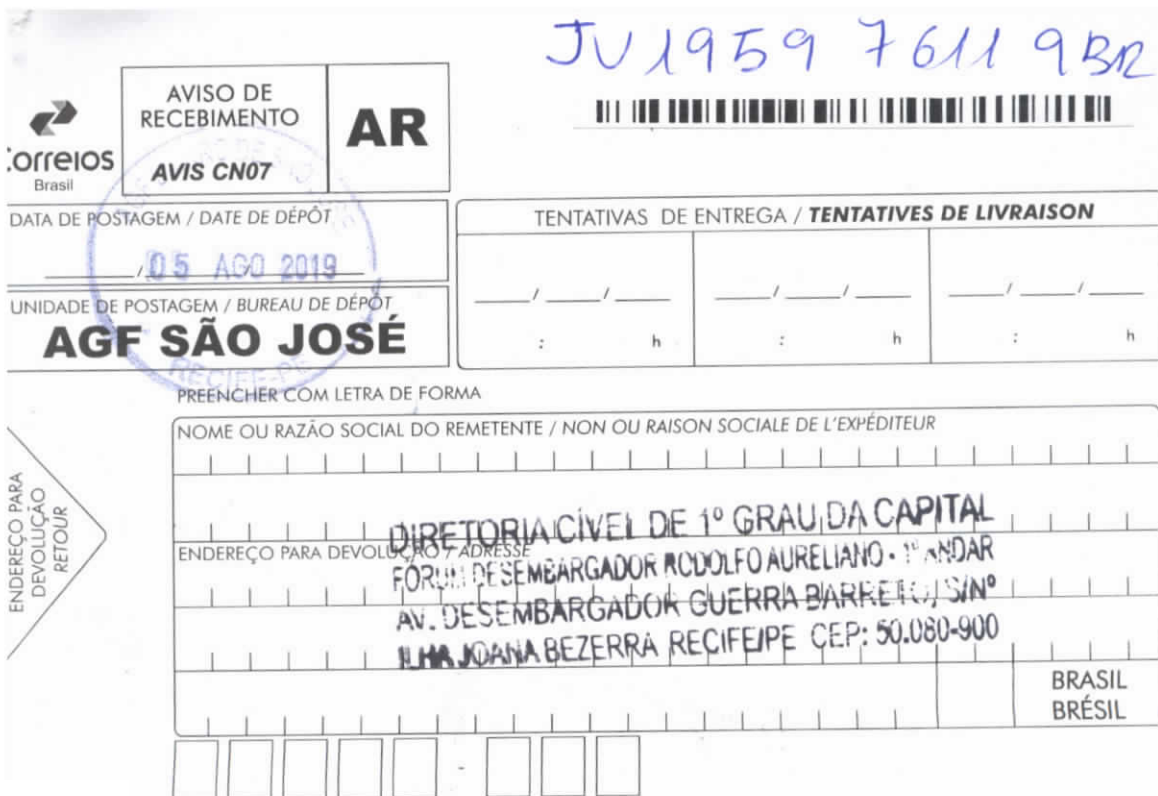 JU 1959 7611 9 BR
Correios
Brasil
AVISO DE
RECEBIMENTO
AVIS CN07
AR
DATA DE POSTAGEM / DATE DE DÉPÔT
05 AGO 2019
UNIDADE DE POSTAGEM / BUREAU DE DÉPÔT
AGF SÃO JOSÉ
RECIFE-PE
TENTATIVAS DE ENTREGA / TENTATIVES DE LIVRAISON
___/___/___ ___/___/___ ___/___/___
: h : h : h
PREENCHER COM LETRA DE FORMA
ENDEREÇO PARA
DEVOLUÇÃO
RETOUR
NOME OU RAZÃO SOCIAL DO REMETENTE / NON OU RAISON SOCIALE DE L'EXPÉDITEUR
DIRETORIA CÍVEL DE 1º GRAU DA CAPITAL
ENDEREÇO PARA DEVOLUÇÃO / ADRESSE
FÓRUM DESEMBARGADOR RODOLFO AURELIANO - 1º ANDAR
AV. DESEMBARGADOR GUERRA BARRETO, S/Nº
ILHA JOANA BEZERRA RECIFE/PE CEP: 50.080-900
BRASIL
BRÉSIL
-